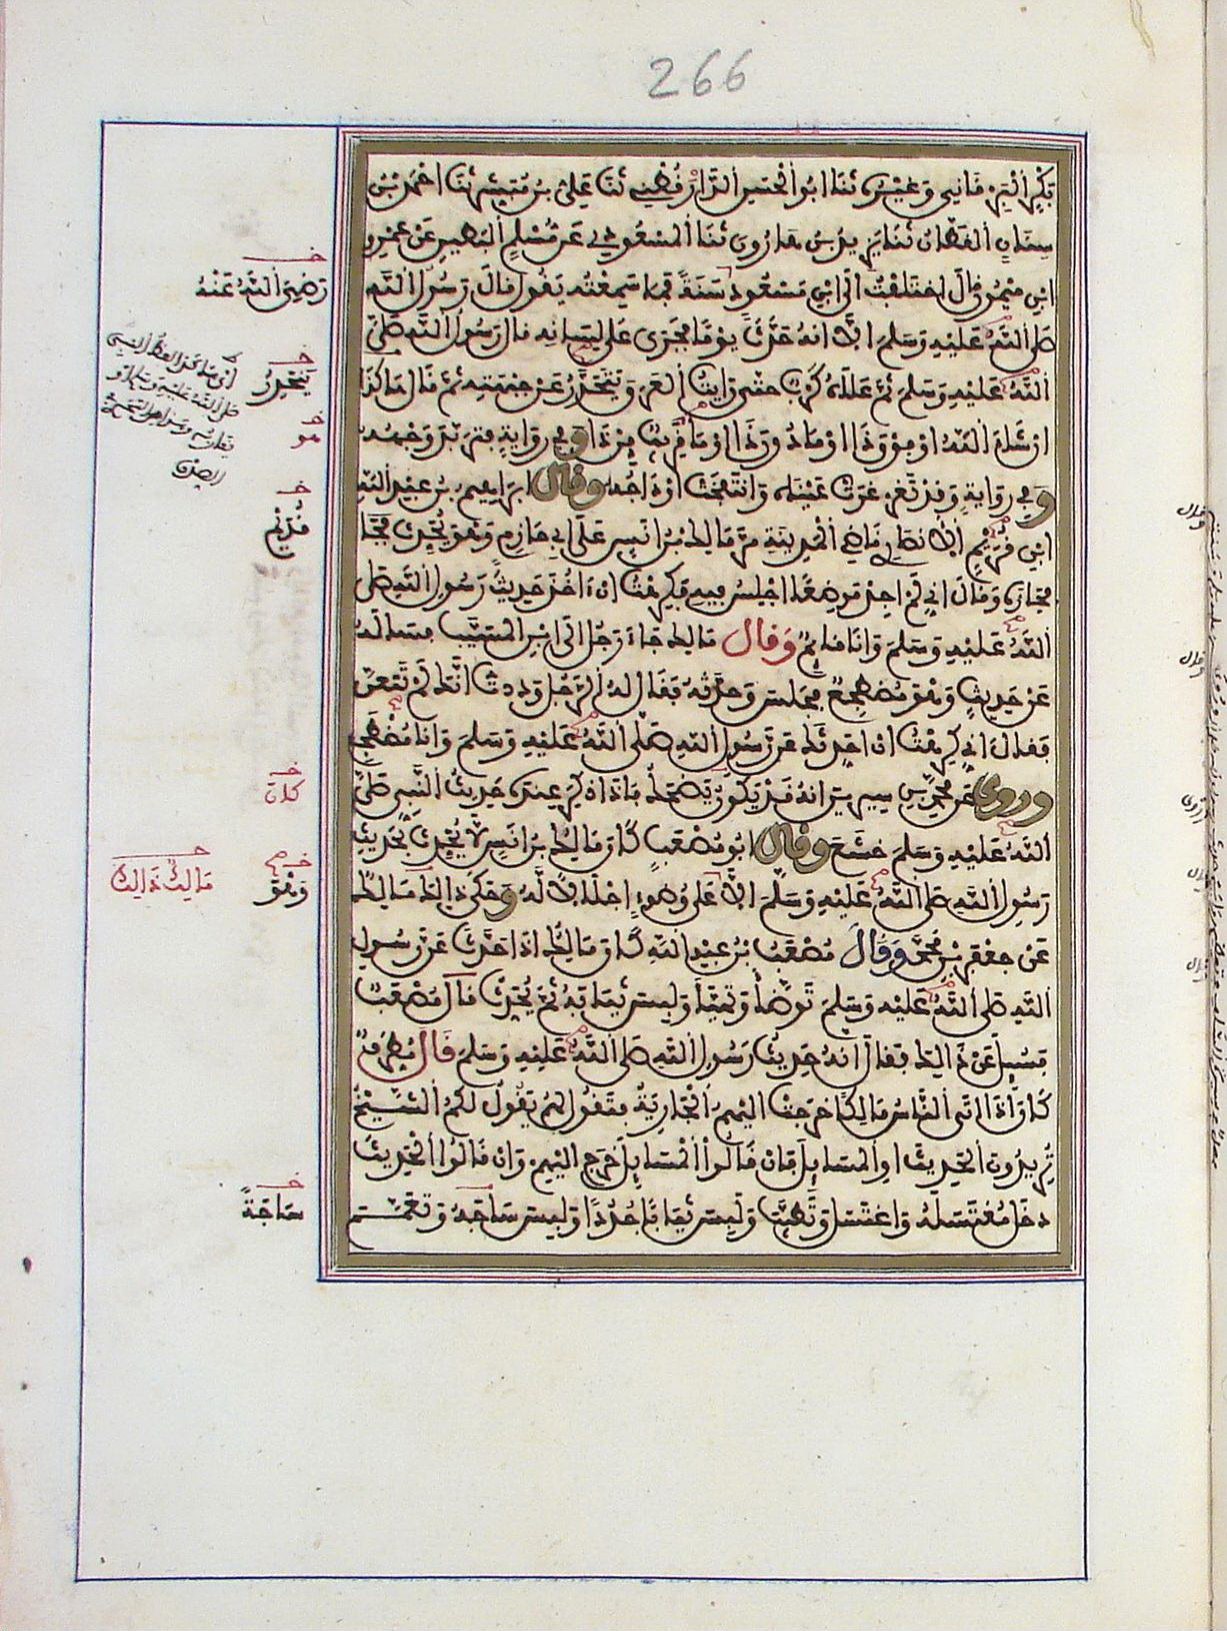 266
بَكْرٍ البَرْقَانِي وَغَيْرُهُ ثَنَا ابُو الْحَسَنِ الدَّارَقُطْنِي ثَنَا عَلِيُّ بْنُ مُبَشِّرٍ ثَنَا احْمَدُ بْنُ
سِنَانٍ القَطَّانُ ثَنَا يَزِيدُ بْنُ هَارُونَ ثَنَا الْمَسْعُودِي عَنْ مُسْلِمٍ البَطِينِ عَنْ عَمْرِو
ابْنِ مَيْمُونٍ قَالَ اخْتَلَفْتُ الَى ابْنِ مَسْعُودٍ سَنَةً فَمَا سَمِعْتُهُ يَقُولُ قَالَ رَسُولُ اللَّهِ
صَلَّى اللَّهُ عَلَيْهِ وَسَلَّمَ الَّا انَّهُ حَدَّثَ يَوْمًا فَجَرَى عَلَى لِسَانِهِ قَالَ رَسُولُ اللَّهِ صَلَّى
اللَّهُ عَلَيْهِ وَسَلَّمَ ثُمَّ عَلَاهُ كَرْبٌ حَتَّى رَايْتُ العَرَقَ يَتَحَدَّرُ عَنْ جَبْهَتِهِ ثُمَّ قَالَ هَاكَذَا
انْ شَاءَ اللَّهُ اوْ فَوْقَ ذَا اوْ مَا دُونَ ذَا اوْ مَا قَرِيبٌ مِنْ ذَا وَفِي رِوَايَةٍ فَتَرَبَّدَ وَجْهُهُ
وَفِي رِوَايَةٍ وَقَدْ تَغَرْغَرَتْ عَيْنَاهُ وَانْتَفَخَتْ اوْدَاجُهُ وَقَالَ ابْرَاهِيمُ بْنُ عَبْدِ اللَّهِ
ابْنِ قُرَيْمٍ الْأَنْصَارِي قَاضِي الْمَدِينَةِ مَرَّ مَالِكُ بْنُ انَسٍ عَلَى ابِي حَازِمٍ وَهُوَ يُحَدِّثُ فَجَا
فَجَازَهُ وَقَالَ انِّي لَمْ اجِدْ مَوْضِعًا اجْلِسُ فِيهِ فَكَرِهْتُ انْ ءَاخُذَ حَدِيثَ رَسُولِ اللَّهِ صَلَّى
اللَّهُ عَلَيْهِ وَسَلَّمَ وَانَا قَائِمٌ وَقَالَ مَالِكٌ جَاءَ رَجُلٌ الَى ابْنِ الْمُسَيَّبِ فَسَالَهُ
عَنْ حَدِيثٍ وَهْوَ مُضْطَجِعٌ فَجَلَسَ وَحَدَّثَهُ فَقَالَ لَهُ الرَّجُلُ وَدِدْتُ انَّكَ لَمْ تَتَعَنَّ
فَقَالَ انِّي كَرِهْتُ انْ احَدِّثَكَ عَنْ رَسُولِ اللَّهِ صَلَّى اللَّهُ عَلَيْهِ وَسَلَّمَ وَانَا مُضْطَجِعٌ
وروى عَنْ مُحَمَّدِ بْنِ سِيرِينَ انَّهُ قَدْ يَكُونُ يَضْحَكُ فَاذَا ذُكِرَ عِنْدَهُ حَدِيثُ النَّبِيِّ صَلَّى
اللَّهُ عَلَيْهِ وَسَلَّمَ خَشَعَ وقال ابُو مُصْعَبٍ كَانَ مَالِكُ بْنُ انَسٍ لَا يُحَدِّثُ بِحَدِيثِ
رَسُولِ اللَّهِ صَلَّى اللَّهُ عَلَيْهِ وَسَلَّمَ الَّا عَلَى وُضُوءٍ اجْلَالًا لَهُ وَحَكَى ذَالِكَ مَالِكٌ
عَنْ جَعْفَرِ بْنِ مُحَمَّدٍ وَقَالَ مُصْعَبُ بْنُ عَبْدِ اللَّهِ كَانَ مَالِكٌ اذَا حَدَّثَ عَنْ رَسُولِ
اللَّهِ صَلَّى اللَّهُ عَلَيْهِ وَسَلَّمَ تَوَضَّأَ وَتَهَيَّأَ وَلَبِسَ ثِيَابَهُ ثُمَّ يُحَدِّثُ قَالَ مُصْعَبٌ
فَسُئِلَ عَنْ ذَالِكَ فَقَالَ انَّهُ حَدِيثُ رَسُولِ اللَّهِ صَلَّى اللَّهُ عَلَيْهِ وَسَلَّمَ قَالَ مُطَرِّفٌ
كَانَ اذَا اتَى النَّاسُ مَالِكًا خَرَجَتْ الَيْهِمُ الْجَارِيَةُ فَتَقُولُ لَهُمْ يَقُولُ لَكُمُ الشَّيْخُ
تُرِيدُونَ الحَدِيثَ اوِ الْمَسَايِلَ فَانْ قَالُوا الْمَسَايِلَ خَرَجَ الَيْهِمْ وَانْ قَالُوا الْحَدِيثَ
دخَلَ مُغْتَسَلَهُ وَاغْتَسَلَ وَتَطَيَّبَ وَلَبِسَ ثِيَابًا جُدُدًا وَلَبِسَ سَاجَهُ وَتَعَمَّمَ
رَضِيَ اللَّهُ عَنْهُ
يَنْحَدِرُ
هو
قُرَيْم
كان
وَهْوَ
مَالِكٌ ذَالِكَ
سَاجَهُ